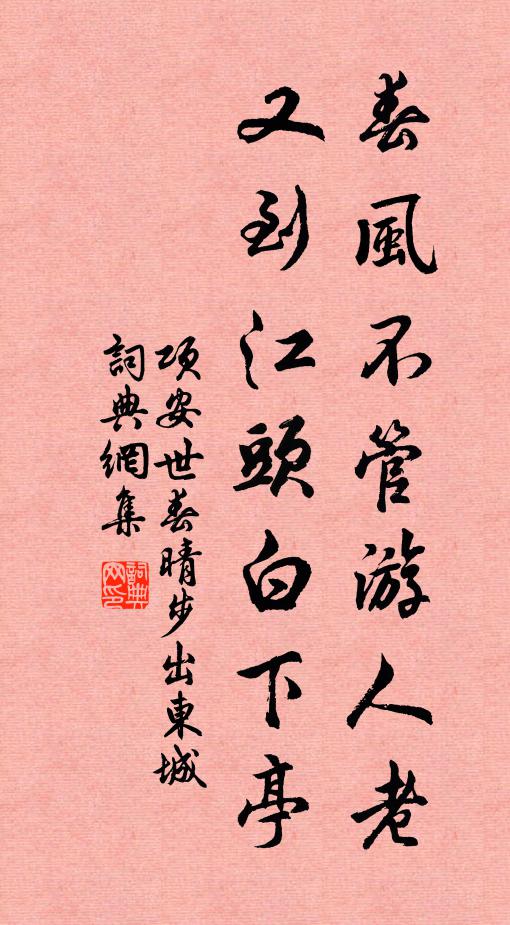 春風不管游人老
又到江頭白下亭
項安世春晴步出東城
詞典網集
詞典网印